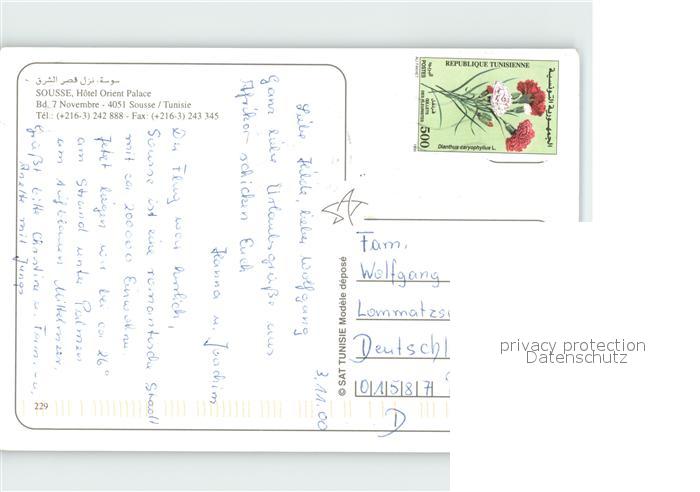 سوسة، نزل قصر الشرق
SOUSSE, Hôtel Orient Palace
Bd. 7 Novembre - 4051 Sousse / Tunisie
Tél.: (+216-3) 242 888 - Fax: (+216-3) 243 345
REPUBLIQUE TUNISIENNE
الجمهورية التونسية
POSTES
500
Dianthus caryophyllus L.
3.11.00
Liebe Hilde, lieber Wolfgang
Ganz liebe Urlaubsgrüße aus
Afrika schicken Euch
Hanna u. Joachim
Der Flug war herrlich,
Sousse ist eine romantische Stadt
mit ca 200000 Einwohne
Jetzt liegen wir bei ca 26°
am Strand unter Palmen
am tiefblauen Mittelmeer.
Grüßt bitte Christine u. Fam. u.
Anette mit Jungs
© SAT TUNISIE Modèle déposé
Fam.
Wolfgang
Lommatzs
Deutschl
01587
D
229
privacy protection
Datenschutz